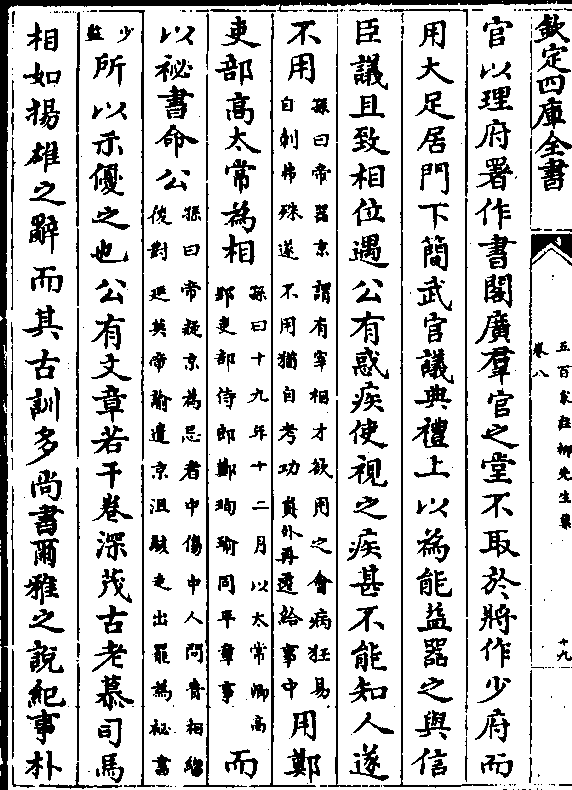 欽定四庫全書
五百家註柳先生集
卷八
十九
官以理府署作書閣廣羣官之堂不取於將作少府而
用大足居門下簡武官議典禮上以為能益器之與信
臣議且致相位遇公有惑疾使視之疾甚不能知人遂
不用孫曰帝器京謂有宰相才欲用之會病狂易自刺弗殊遂不用猶自考功員外再遷給事中用鄭
吏部高太常為相孫曰十九年十二月以太常卿高郢吏部侍郎鄭珣瑜同平章事而
以祕書命公孫曰帝疑京為忌者中傷中人問賚相繼後對延英帝諭遣京沮駭走出罷為祕書
少監所以示優之也公有文章若干卷深茂古老慕司馬
相如揚雄之辭而其古訓多尚書爾雅之說紀事朴